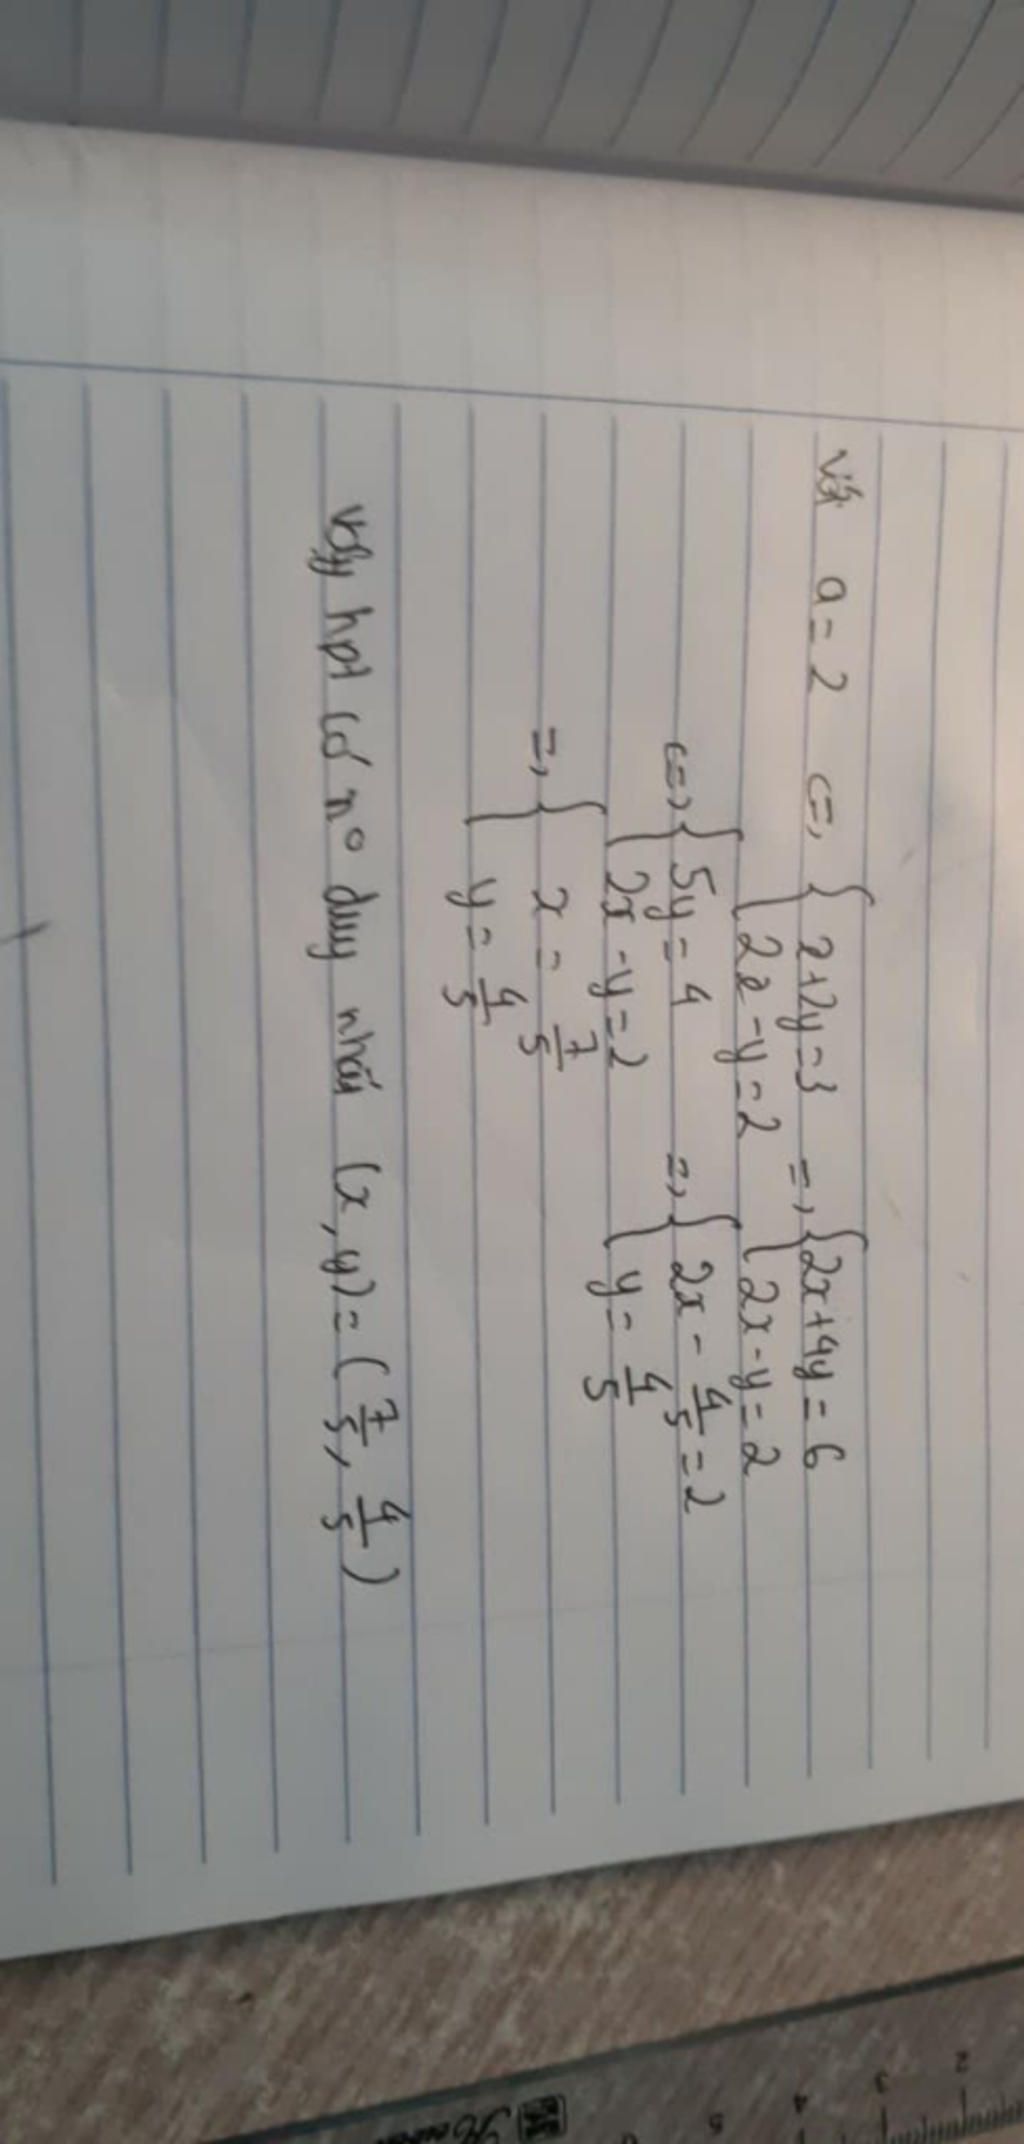 với a = 2 <=> { x + 2y = 3 => { 2x + 4y = 6
{ 2x - y = 2 { 2x - y = 2
<=> { 5y = 4 => { 2x - 4/5 = 2
{ 2x - y = 2 { y = 4/5
=> { x = 7/5
{ y = 4/5
Vậy hpt có n° duy nhất (x, y) = (7/5, 4/5)
2 3 4 5